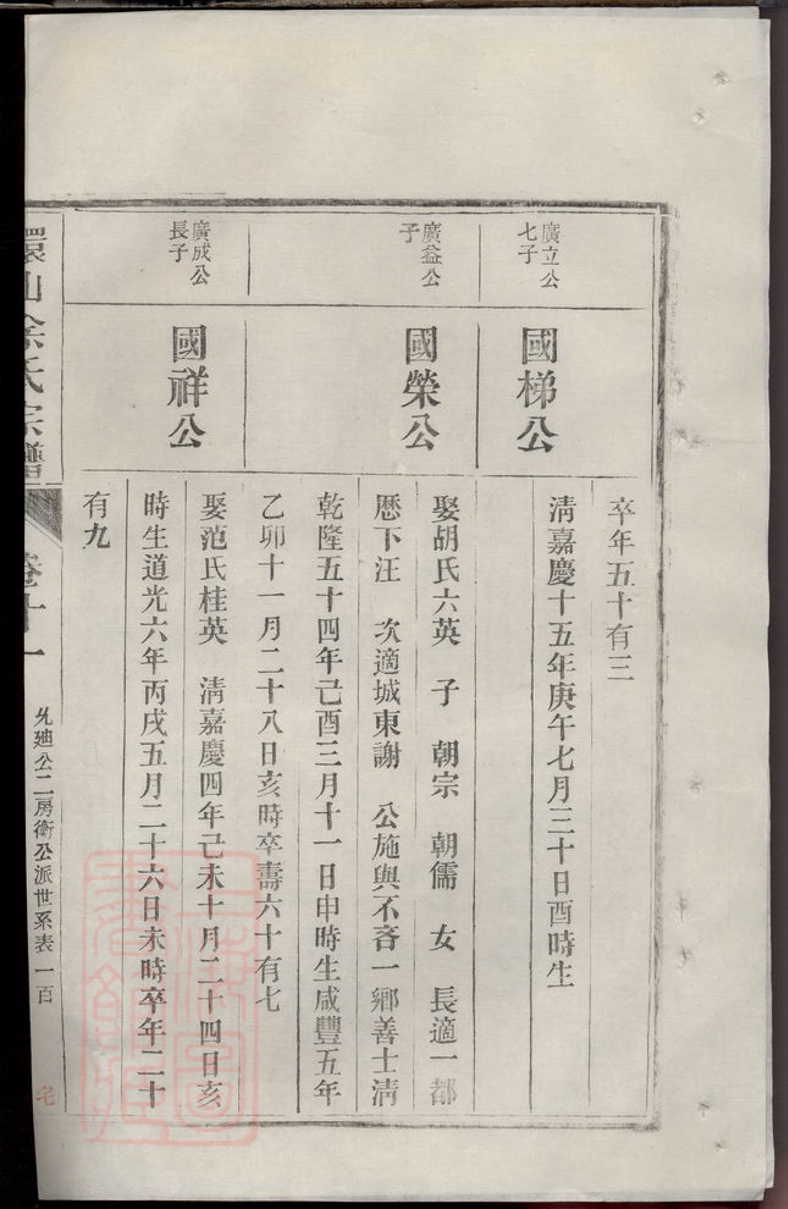 卒年五十有三
廣立公
七子
國梯公
清嘉慶十五年庚午七月三十日酉時生
廣益公
子
國榮公
娶胡氏六英 子 朝宗 朝儒 女 長適一都
歷下汪 次適城東謝 公施與不吝一鄉善士清
乾隆五十四年己酉三月十一日申時生咸豐五年
乙卯十一月二十八日亥時卒壽六十有七
廣成公
長子
國祥公
娶范氏桂英 清嘉慶四年己未十月二十四日亥
時生道光六年丙戌五月二十六日未時卒年二十
有九
環山余氏宗譜
卷十一
允迪公二房衛公派世系表一百